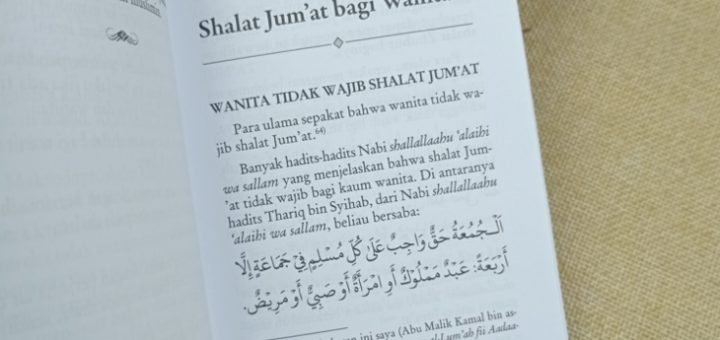 Shalat Jum'at bagi
WANITA TIDAK WAJIB SHALAT JUM'AT
Para ulama sepakat bahwa wanita tidak wa-
jib shalat Jum'at.⁶⁴⁾
Banyak hadits-hadits Nabi shallallaahu 'alaihi
wa sallam yang menjelaskan bahwa shalat Jum-
'at tidak wajib bagi kaum wanita. Di antaranya
hadits Thariq bin Syihab, dari Nabi shallallaahu
'alaihi wa sallam, beliau bersaba:
اَلْـجُمُعَةُ حَقٌّ وَاجِبٌ عَلَىٰ كُلِّ مُسْلِمٍ فِيْ جَمَاعَةٍ إِلَّا
أَرْبَعَةً: عَبْدٌ مَمْلُوْكٌ أَوِ امْرَأَةٌ أَوْ صَبِيٌّ أَوْ مَرِيْضٌ.
ini saya (Abu Malik Kamal bin as-
fii Aadaa-